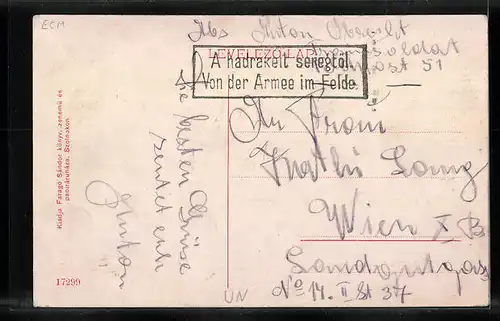 ECM
Abs Anton
LEVELEZŐ-LAP
A hadrakelt seregtől.
Von der Armee im Felde.
51
An Frau
Kathi Lang
Wien X B
No 14. II St 37
Die besten Grüße
sendet euch
Anton
Kiadja Faragó Sándor könyv, zenemű és
papíráruháza, Szolnokon.
17299
UN